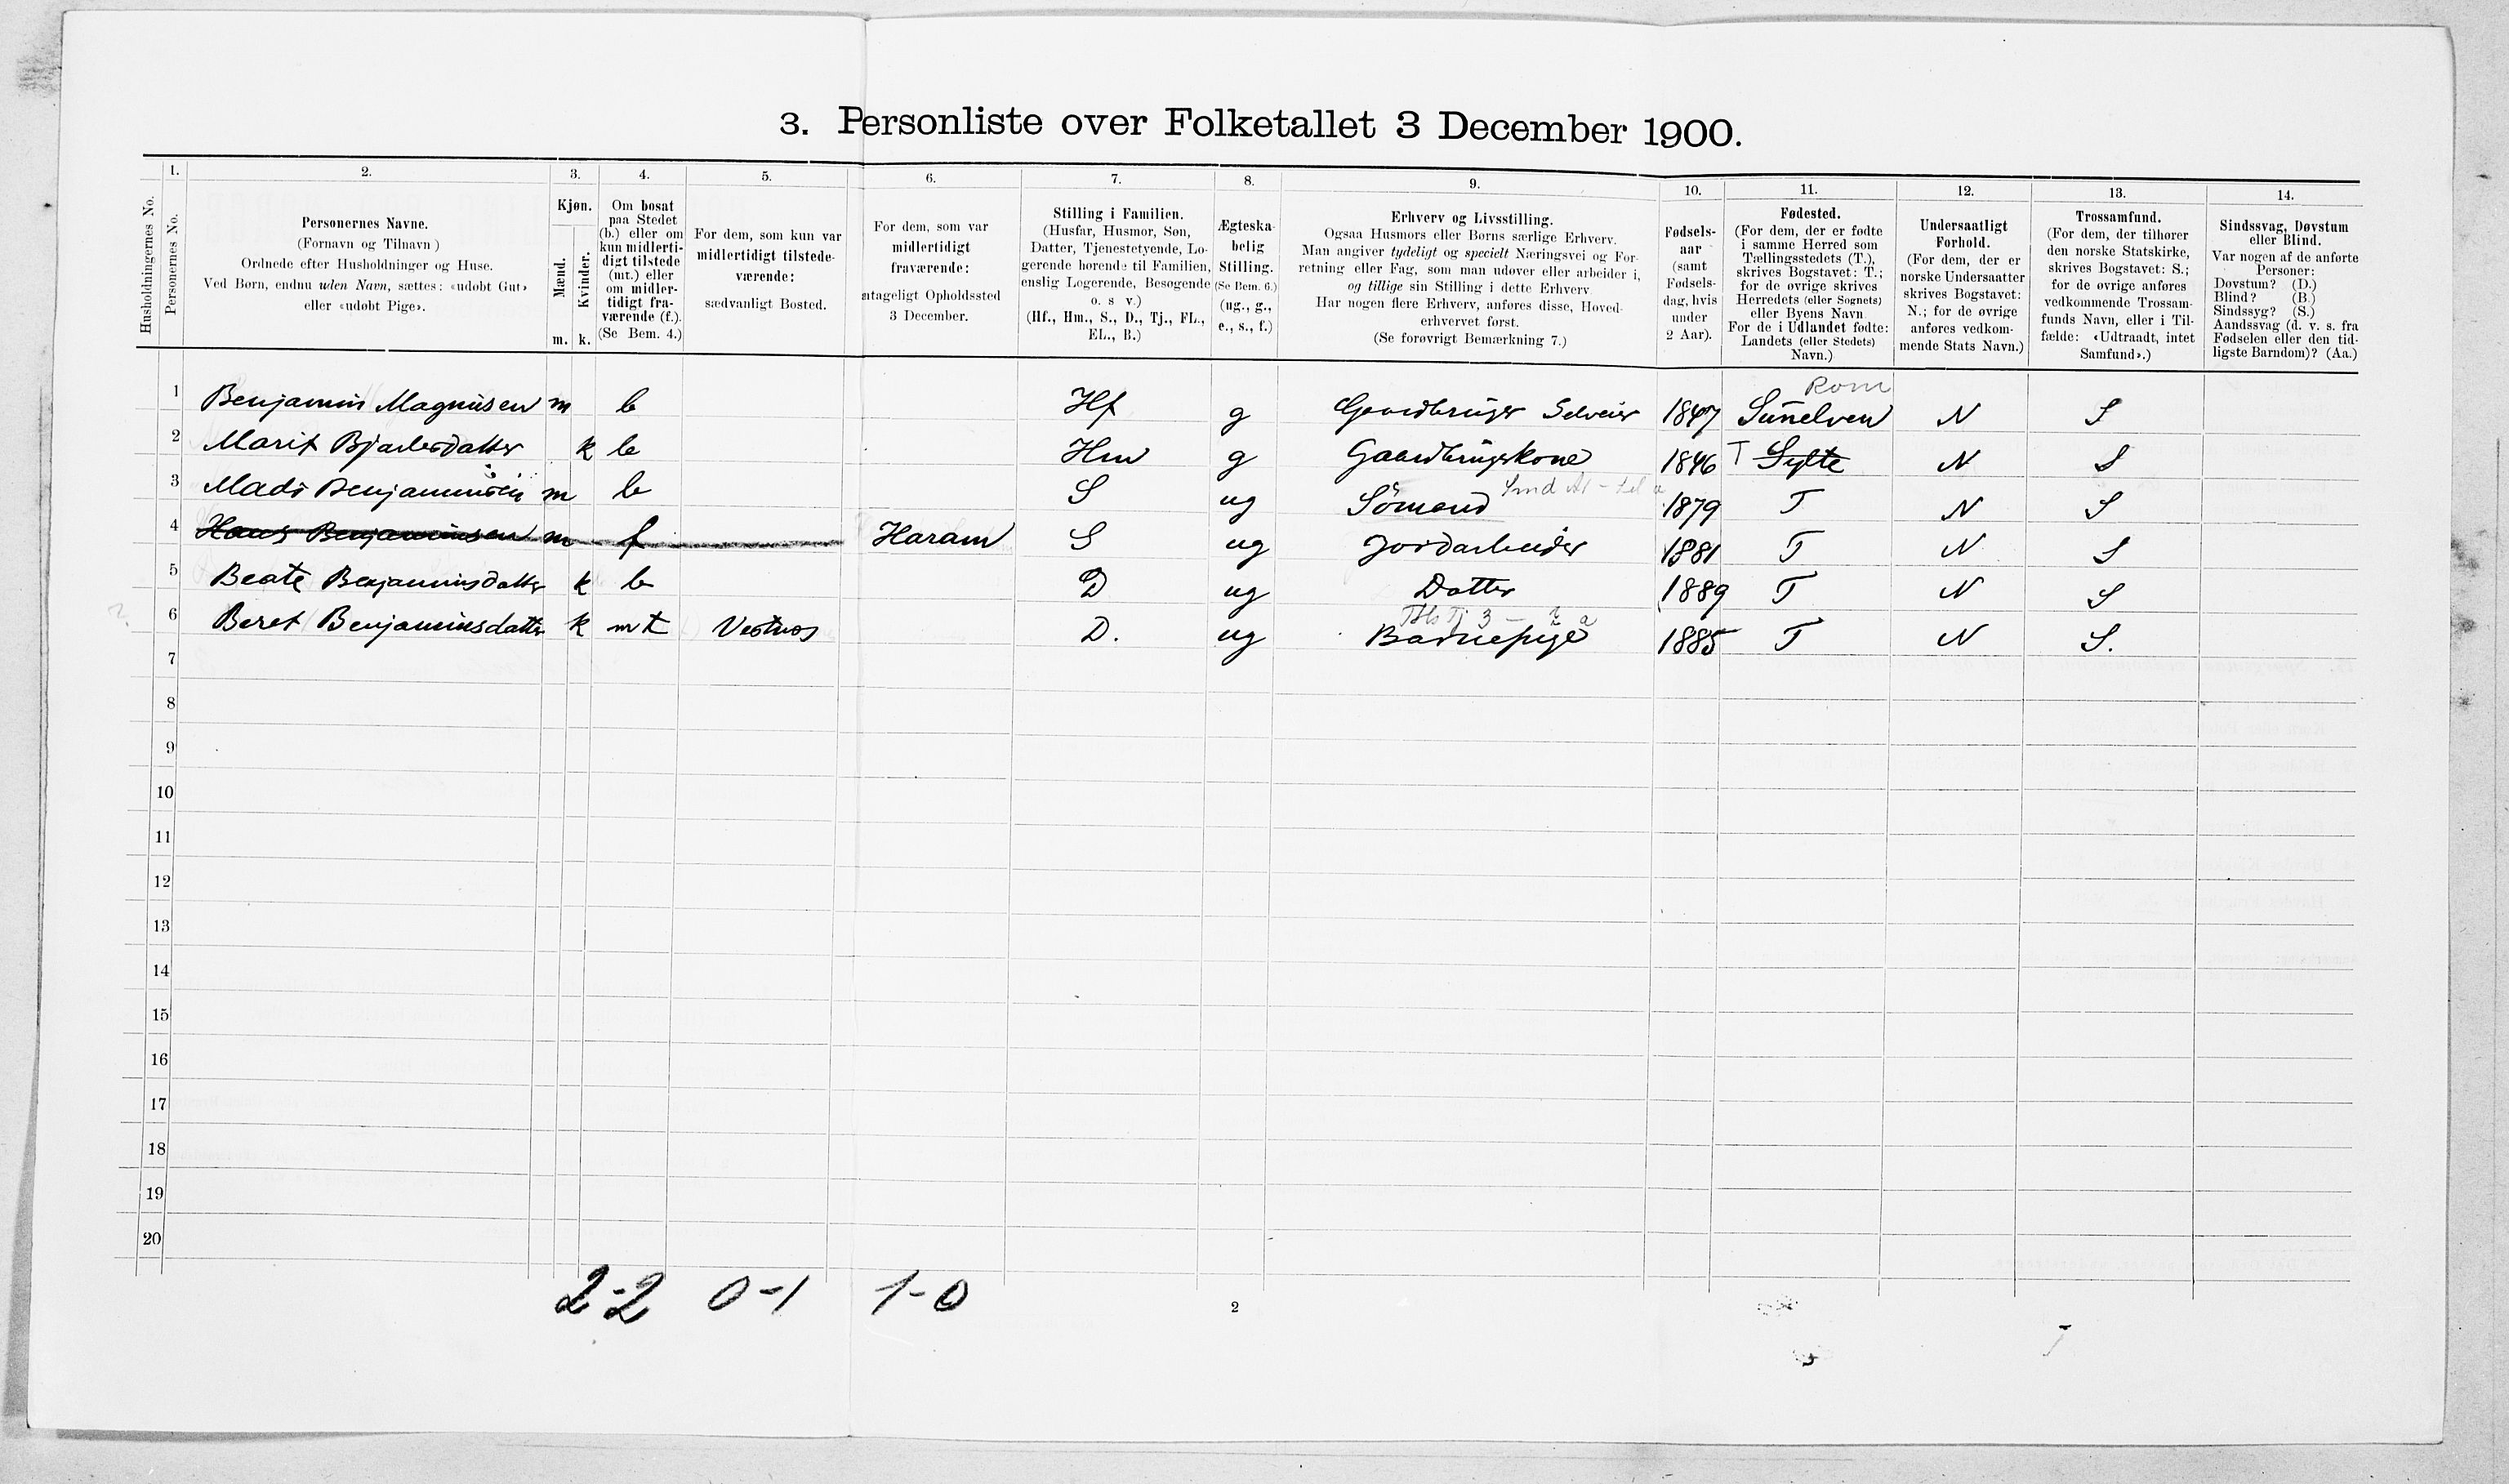 3. Personliste over Folketallet 3 December 1900.
1. 2. 3. 4. 5. 6. 7. 8. 9. 10. 11. 12. 13. 14.
Husholdningernes No.
Personernes No.
Personernes Navne.
(Fornavn og Tilnavn)
Ordnede efter Husholdninger og Huse.
Ved Børn, endnu uden Navn, sættes: «udøbt Gut»
eller «udøbt Pige».
Kjøn.
Mænd.
Kvinder.
m. k.
Om bosat
paa Stedet
(b.) eller om
kun midlerti-
digt tilstede
(mt.) eller
om midler-
tidigt fra-
værende (f.).
(Se Bem. 4.)
For dem, som kun var
midlertidigt tilstede-
værende:
sædvanligt Bosted.
For dem, som var
midlertidigt
fraværende:
antageligt Opholdssted
3 December.
Stilling i Familien.
(Husfar, Husmor, Søn,
Datter, Tjenestetyende, Lo-
gerende hørende til Familien,
enslig Logerende, Besøgende
o. s v.)
(Hf., Hm., S., D., Tj., FL.,
EL., B.)
Ægteska-
belig
Stilling.
(Se Bem. 6.)
(ug., g.,
e., s., f.)
Erhverv og Livsstilling.
Ogsaa Husmors eller Børns særlige Erhverv.
Man angiver tydeligt og specielt Næringsvei og For-
retning eller Fag, som man udøver eller arbeider i,
og tillige sin Stilling i dette Erhverv
Har nogen flere Erhverv, anføres disse, Hoved-
erhvervet først.
(Se forøvrigt Bemærkning 7.)
Fødsels-
aar
(samt
Fødsels-
dag, hvis
under
2 Aar).
Fødested.
(For dem, der er fødte
i samme Herred som
Tællingsstedets (T.),
skrives Bogstavet: T.;
for de øvrige skrives
Herredets (eller Sognets)
eller Byens Navn
For de i Udlandet fødte:
Landets (eller Stedets)
Navn.)
Undersaatligt
Forhold.
(For dem, der er
norske Undersaatter
skrives Bogstavet:
N.; for de øvrige
anføres vedkom-
mende Stats Navn.)
Trossamfund.
(For dem, der tilhører
den norske Statskirke,
skrives Bogstavet: S.;
for de øvrige anføres
vedkommende Trossam-
funds Navn, eller i Til-
fælde: «Udtraadt, intet
Samfund».)
Sindssvag, Døvstum
eller Blind.
Var nogen af de anførte
Personer:
Døvstum? (D.)
Blind? (B.)
Sindssyg? (S.)
Aandssvag (d. v. s. fra
Fødselen eller den tid-
ligste Barndom)? (Aa.)
Rom
1 Benjamin Magnusen m b Hf g Gaardbruger Selveier 1847 Sunelven N S
2 Marit Bjarlesdatter k b Hm g Gaardbrugerkone 1846 T Sylte N S
3 Mads Benjaminsen m b S ug Sömand 1879 T N S
4 Hans Benjaminsen m f Haram S ug Jordarbeider 1881 T N S
5 Beate Benjaminsdatter k b D ug Datter 1889 T N S
6 Beret Benjaminsdatter k mt Vestnes D. ug Barnepige 1885 T N S.
7
8
9
10
11
12
13
14
15
16
17
18
19
20
2-2 0-1 1-0
2